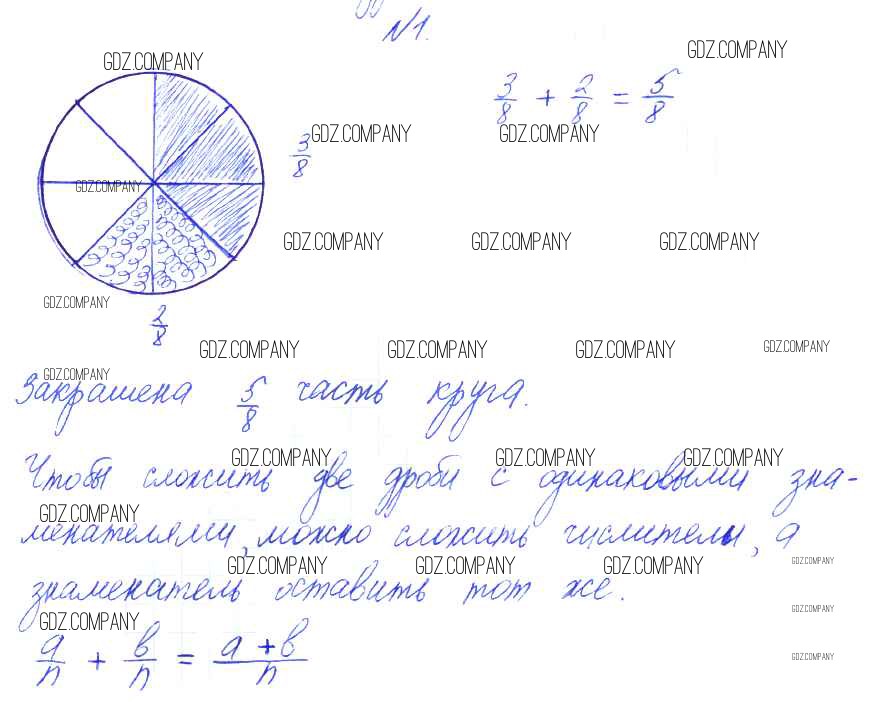 №1.
GDZ.COMPANY
GDZ.COMPANY
3/8 + 2/8 = 5/8
3/8
GDZ.COMPANY
GDZ.COMPANY
GDZ.COMPANY
GDZ.COMPANY
GDZ.COMPANY
GDZ.COMPANY
GDZ.COMPANY
2/8
GDZ.COMPANY
GDZ.COMPANY
GDZ.COMPANY
GDZ.COMPANY
GDZ.COMPANY
Закрашена 5/8 часть круга.
GDZ.COMPANY
GDZ.COMPANY
GDZ.COMPANY
Чтобы сложить две дроби с одинаковыми зна-
GDZ.COMPANY
менателями, можно сложить числители, а
GDZ.COMPANY
GDZ.COMPANY
GDZ.COMPANY
GDZ.COMPANY
знаменатель оставить тот же.
GDZ.COMPANY
GDZ.COMPANY
a/n + b/n = a + b/n
GDZ.COMPANY